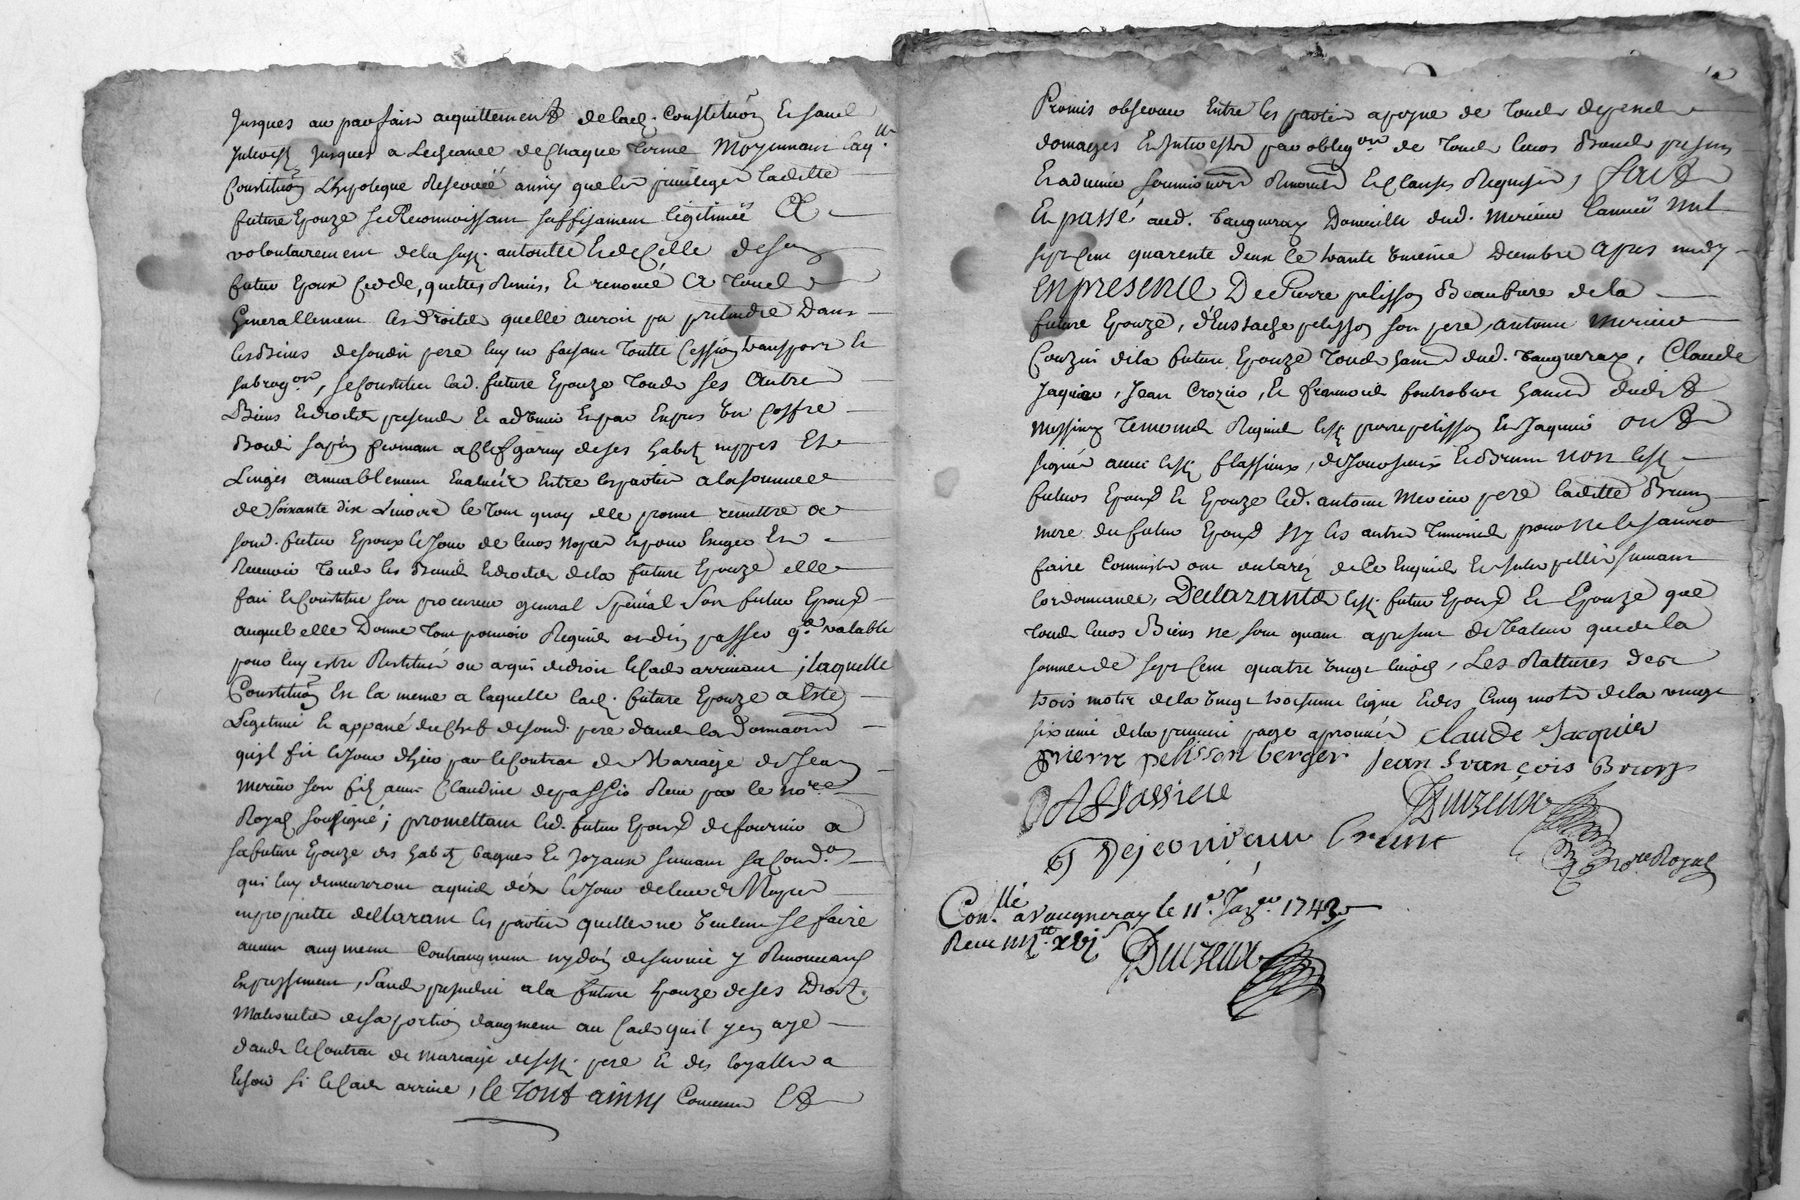 Jusques au parfait acquittement de lad. Constitu͠on Ensemble
Jusques a Lecheance de chaque terme Moyennant laq.lle
Constitu͠on Lhypoteque Reservée ainsy que les privileges laditte
future Epouze se Reconnoissant suffisamment legitimée Et
volontairement de la susd. autorité Et de Celle de son
futur Epoux cede, quitte, Remis, Et renoncé a tous
Generallement les droits quelle auroit pu pretendre dans
les Biens de sondit pere luy en faisant toutte Cession transport Et
subrog.on, se Constitue lad. future Epouze tous ses autres
Biens Et droits presents Et advenir Et par Exprés un Coffre
Bois sapin fermant a Clef garny de ses habits nippes Et
Linges amiablement Evalués Entre les parties a la somme
de soixante dix Livres le tout quoy elle promet remettre a
sond. futur Epoux le jour de leurs Nopces Et pour Exiger Et
Recevoir tous les Biens Et droits de la future Epouze elle
fait Et Constitue son procureur general Special son futur Epoux
auquel elle Donne tout pouvoir Requis Et d'en passer q.ce valable
pour luy estre Restitué ou a qui de droit le Cas arrivant; laquelle
Constitu͠on Est la meme a laquelle lad. future Epouze a Esté
Legitimée Et appanée du Chef de sond. pere dans la Donnaon
qu'il fit le jour d'hier par le Contrat de Mariage de Jean
Merieu son fils avec Claudine depassio Recu par le no.re
Royal soussigné; promettant led. futur Epoux de fournir a
sa future Epouze des habits bagues Et Joyaux suivant sa Cond.on
qui luy demeureront acquis dés le jour de leurs Nopces
En propriette declarant les parties quelles ne veulent se faire
aucun augment Contraugment ny don de survie y Renonceant
Expressement, sans prejudice a la future Epouze de ses Droits
Maternels de sa portion daugment au Cas quil y en aye
dans le Contrat de Mariage de sesd. pere Et
si le Cas arrive, le tout ainsy Convenu Et
Promis observer Entre les parties a peyne de tous depens
domages Et Interests par oblig.on de tous leurs Biens presens
Et advenir soumissions Renon͠on Et Clauses Requises, fait
Et passé aud. Vaugneray Domicille dud. Merieu lannée mil
sept Cent quarente deux le trante unieme Decembre Apres midy
En presence De Pierre pelisson Beaufrere de la
future Epouze, d'Eustache pelisson son pere, antoine Merieu
Couzin de la future Epouze tous hans dud. Vaugneray, Claude
Jaquier, Jean Crozier, Et francois hans dudit
Messimy Temoins Requis lesd. pierre pelisson Et Jaquier ont
signé avec lesd. flassieux, de Jouvenceux Et Brun non lesd.
futurs Epoux Et Epouze led. antoine Merieu pere laditte Brun
mere du futur Epoux Ny les autres temoins pour ne le scavoir
faire Comme ont declaré de ce Enquis Et Interpellés suivant
lordonnance, Declarants lesd. futur Epoux Et Epouze que
tous leurs Biens ne sont quant a present de Valeur que de la
somme de sept Cent quatre vingt livres, Les Rattures des
trois mots de la vingt troisieme ligne Et des Cinq mots de la vingt
sixieme de la premiere page aprouvées Claude Jacquier
pierre pelisson berger Jean François Brun
Duizeux
no.re Royal
Con.llé a Vaugneray le 11.e Jan.er 1743
Receu
Duizeux